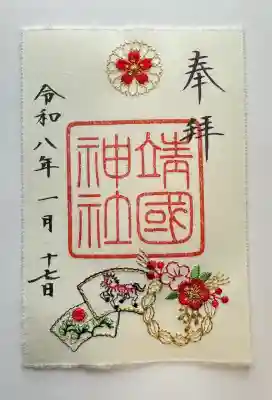 奉拝
靖國
神社
令和八年 一月 十七日